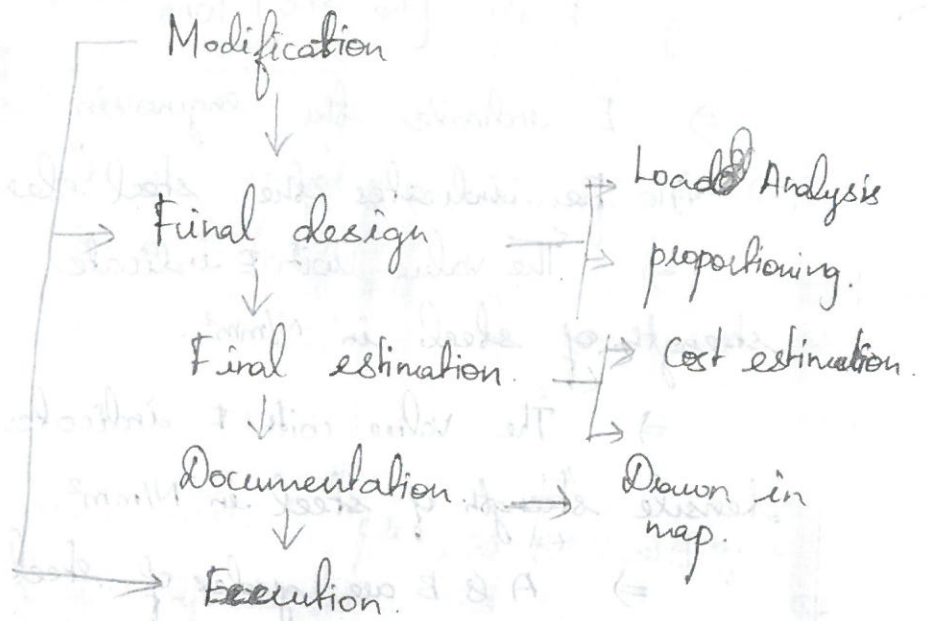 Modification
Final design
Load Analysis
proportioning.
Final estimation.
Cost estimation.
Documentation.
Drawn in
map.
Execution.